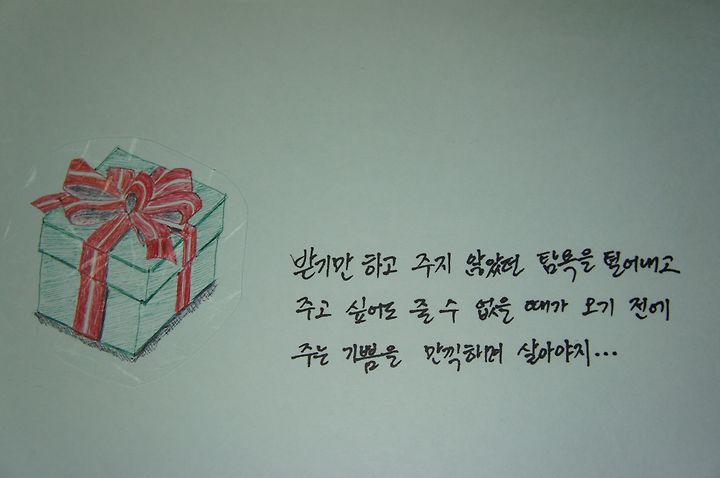 받기만 하고 주지 않았던 탐욕을 털어내고
주고 싶어도 줄 수 없을 때가 오기 전에
주는 기쁨을 만끽하며 살아야지...